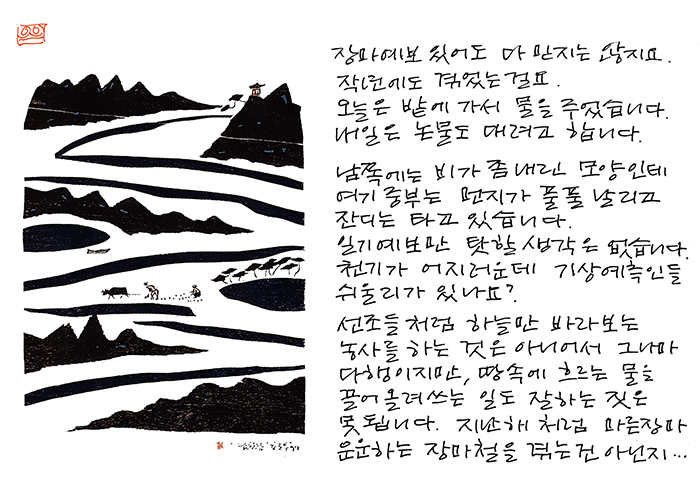 장마예보 있어도 다 믿지는 않지요.
작년에도 겪었는걸요.
오늘은 밭에 가서 물을 주었습니다.
내일은 논물도 대려고 합니다.
남쪽에는 비가 좀 내린 모양인데
여기 중부는 먼지가 풀풀 날리고
잔디는 타고 있습니다.
일기예보만 탓할 생각은 없습니다.
천기가 어지러운데 기상예측인들
쉬울리가 있나요?
선조들처럼 하늘만 바라보는
농사를 하는 것은 아니어서 그나마
다행이지만, 땅속에 흐르는 물을
끌어 올려쓰는 일도 잘하는 짓은
못됩니다. 지난해처럼 마른장마
운운하는 장마철을 겪는건 아닌지...